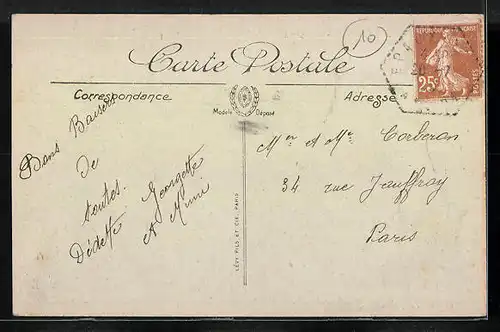 10
Carte Postale
REPUBLIQUE FRANÇAISE
25c
POSTES
Correspondance
Adresse
Modèle Déposé
Bons Baisers
de
toutes
Dédette Georgette
et Mimi
Mr et Me Corberon
34 rue Jauffroy
Paris
LÉVY FILS ET CIE, PARIS